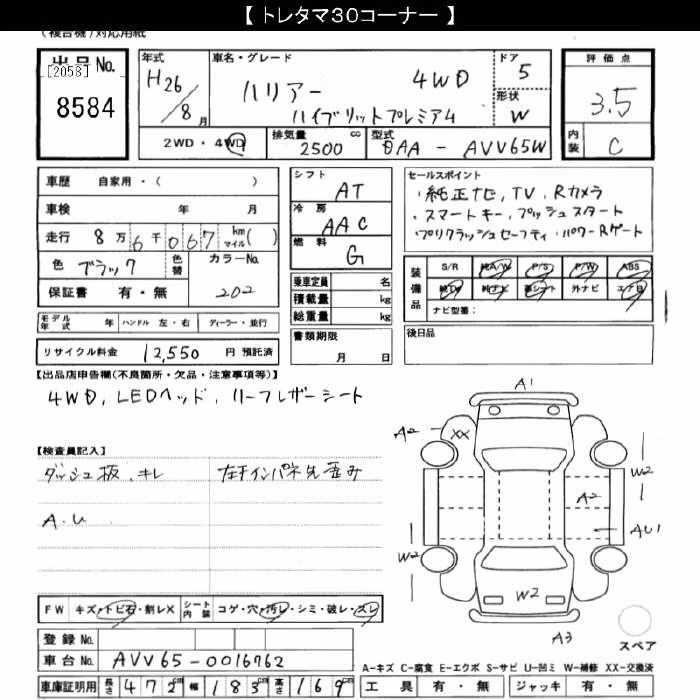 【 トレタマ30コーナー 】
(複合機)対応用紙
出品No.
[2058]
8584
年式
H26/8月
車名・グレード
ハリアー 4WD
ハイブリットプレミアム
ドア
5
形状
W
評価点
3.5
内装
C
2WD・4WD
排気量
2500 cc
型式
DAA - AVV65W
車歴 自家用・( )
車検 年 月
走行 8万6千067 km マイル( )
色 ブラック 色替
カラーNo.
202
保証書 有・無
モデル年式 年 ハンドル 左・右 ディーラー・並行
リサイクル料金 12,550 円 預託済
シフト
AT
冷房
AAC
燃料
G
乗車定員 名
積載量 kg
総重量 kg
書類期限
月 日
セールスポイント
・純正ナビ, TV, Rカメラ
・スマートキー, プッシュスタート
・プリクラッシュセーフティ・パワーRゲート
装備品
S/R 純A/W P/S P/W ABS
純TV 純ナビ 革シート 外ナビ エアB
ナビ型番:
後日品
【出品店申告欄(不良箇所・欠品・注意事項等)】
4WD, LEDヘッド, ハーフレザーシート
【検査員記入】
ダッシュ板、キレ
左チインパネ先歪み
A.U
A1
A2
XX
W2
A2
AU1
W2
W2
A3
スペア
FW キズ・トビ石・割レX
シート内装 コゲ・穴・汚レ・シミ・破レ・スレ
登録No.
車台No. AVV65-0016762
A-キズ C-腐食 E-エクボ S-サビ U-凹ミ W-補修 XX-交換済
車庫証明用 長さ 472cm 幅 183cm 高さ 169cm
工具 有・無 ジャッキ 有・無